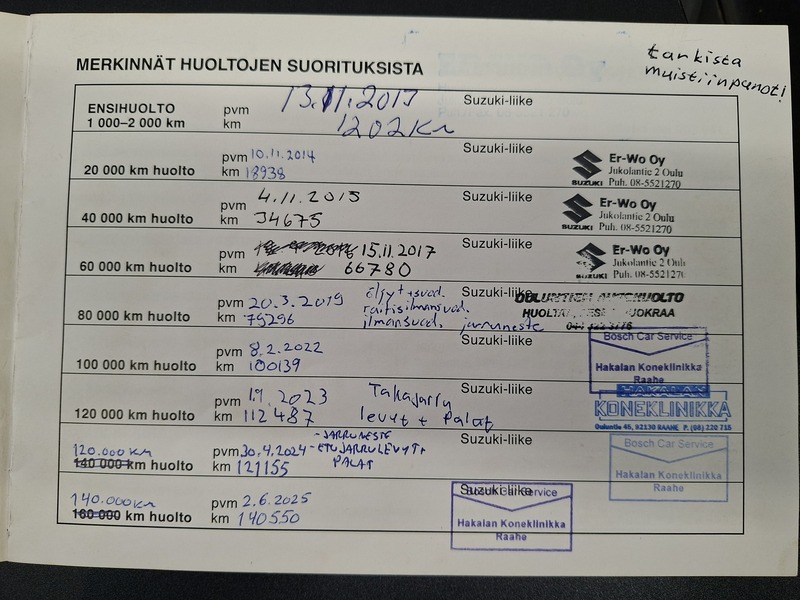 tarkista
muistiinpanot!
MERKINNÄT HUOLTOJEN SUORITUKSISTA
ENSIHUOLTO
1 000–2 000 km
pvm 13.11.2017
km 1202 km
Suzuki-liike
20 000 km huolto
pvm 10.11.2014
km 18938
Suzuki-liike
SUZUKI
Er-Wo Oy
Jukolantie 2 Oulu
Puh. 08-5521270
40 000 km huolto
pvm 4.11.2015
km 34675
Suzuki-liike
SUZUKI
Er-Wo Oy
Jukolantie 2 Oulu
Puh. 08-5521270
60 000 km huolto
pvm 15.11.2017
km 66780
Suzuki-liike
SUZUKI
Er-Wo Oy
Jukolantie 2 Oulu
Puh. 08-55212
80 000 km huolto
pvm 20.3.2019
km 79296
öljy+suod.
raitisilmansuod.
ilmansuod. jarruneste
Suzuki-liike
100 000 km huolto
pvm 8.2.2022
km 100139
Suzuki-liike
Bosch Car Service
Hakalan Koneklinikka
Raahe
120 000 km huolto
pvm 1.9.2023
km 112487
Takajarru
levyt + palat
Suzuki-liike
HAKALAN
KONEKLINIKKA
Ouluntie 45, 92130 RAAHE P. (08) 220 715
120.000 km
140 000 km huolto
pvm 30.4.2024
km 121155
-JARRUNESTE
-ETUJARRULEVYT+
PALAT
Suzuki-liike
Bosch Car Service
Hakalan Koneklinikka
Raahe
140.000 km
160 000 km huolto
pvm 2.6.2025
km 140550
Suzuki-liike
Bosch Car Service
Hakalan Koneklinikka
Raahe